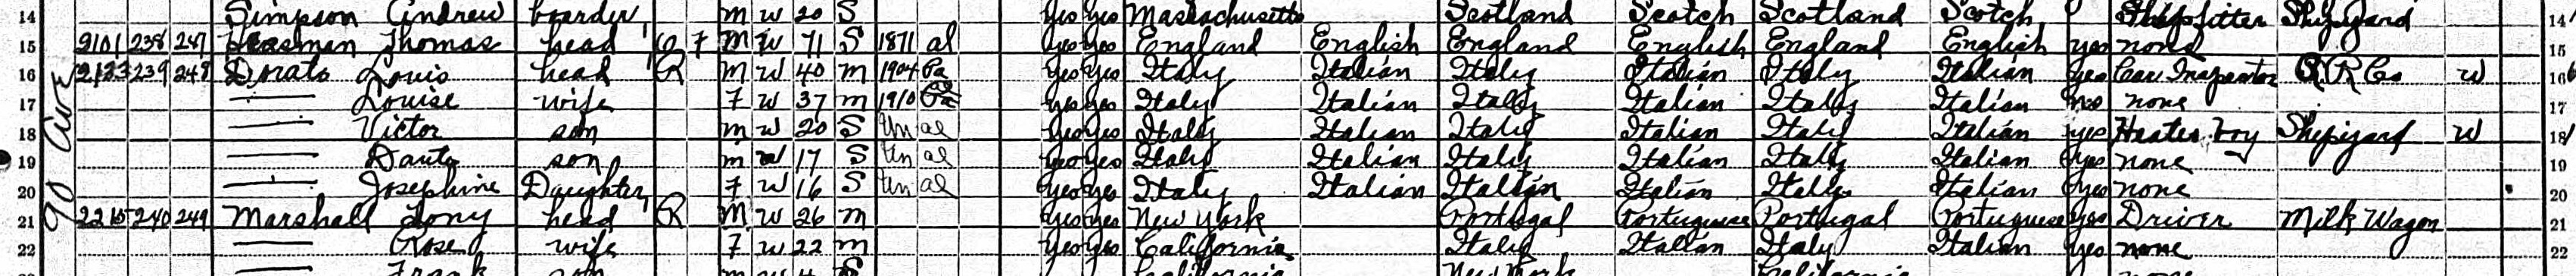 14 Simpson Andrew boarder m w 20 S yes yes Massachusetts Scotland Scotch Scotland Scotch Shipfitter Shipyard 14
15 9101 238 247 Thomas head O F M W 71 S 1871 al yes yes England English England English England English yes none 15
16 2133 239 248 Dorato Louis head R m w 40 m 1904 Pa yes yes Italy Italian Italy Italian Italy Italian yes Car Inspector R R Co w 16
17 Louise wife F w 37 m 1910 Pa yes yes Italy Italian Italy Italian Italy Italian no none 17
18 Victor son m w 20 S Un al yes yes Italy Italian Italy Italian Italy Italian yes Heater boy Shipyard w 18
19 Dante son m w 17 S Un al yes yes Italy Italian Italy Italian Italy Italian yes none 19
20 Josephine Daughter F w 16 S Un al yes yes Italy Italian Italian Italian Italy Italian yes none 20
21 2215 240 249 Marshall Tony head R M w 26 m yes yes New York Portugal Portuguese Portugal Portuguese yes Driver Milk Wagon 21
22 Rose wife F w 22 m yes yes California Italy Italian Italy Italian yes none 22
Frank son m w S California New York California none
90 Ave